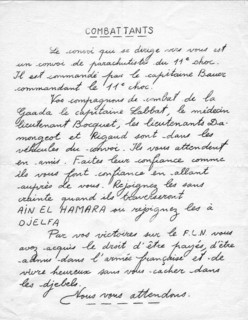 COMBATTANTS
Le convoi qui se dirige vers vous est
un convoi de parachutistes du 11e choc.
Il est commandé par le capitaine Bauer
commandant le 11e choc.
Vos compagnons de combat de la
Gaada le capitaine Labbat, le médecin
lieutenant Bocquet, les lieutenants Da-
mengeot et Rigaud sont dans les
véhicules du convoi. Ils vous attendent
en amis. Faites leur confiance comme
ils vous font confiance en allant
auprès de vous. Rejoignez les sans
crainte quand ils traverseront
AÏN EL HAMARA ou rejoignez les à
DJELFA
Par vos victoires sur le F.L.N. vous
avez acquis le droit d'être payés, d'être
admis dans l'armée française et de
vivre heureux sans vous cacher dans
les djebels.
Nous vous attendons.